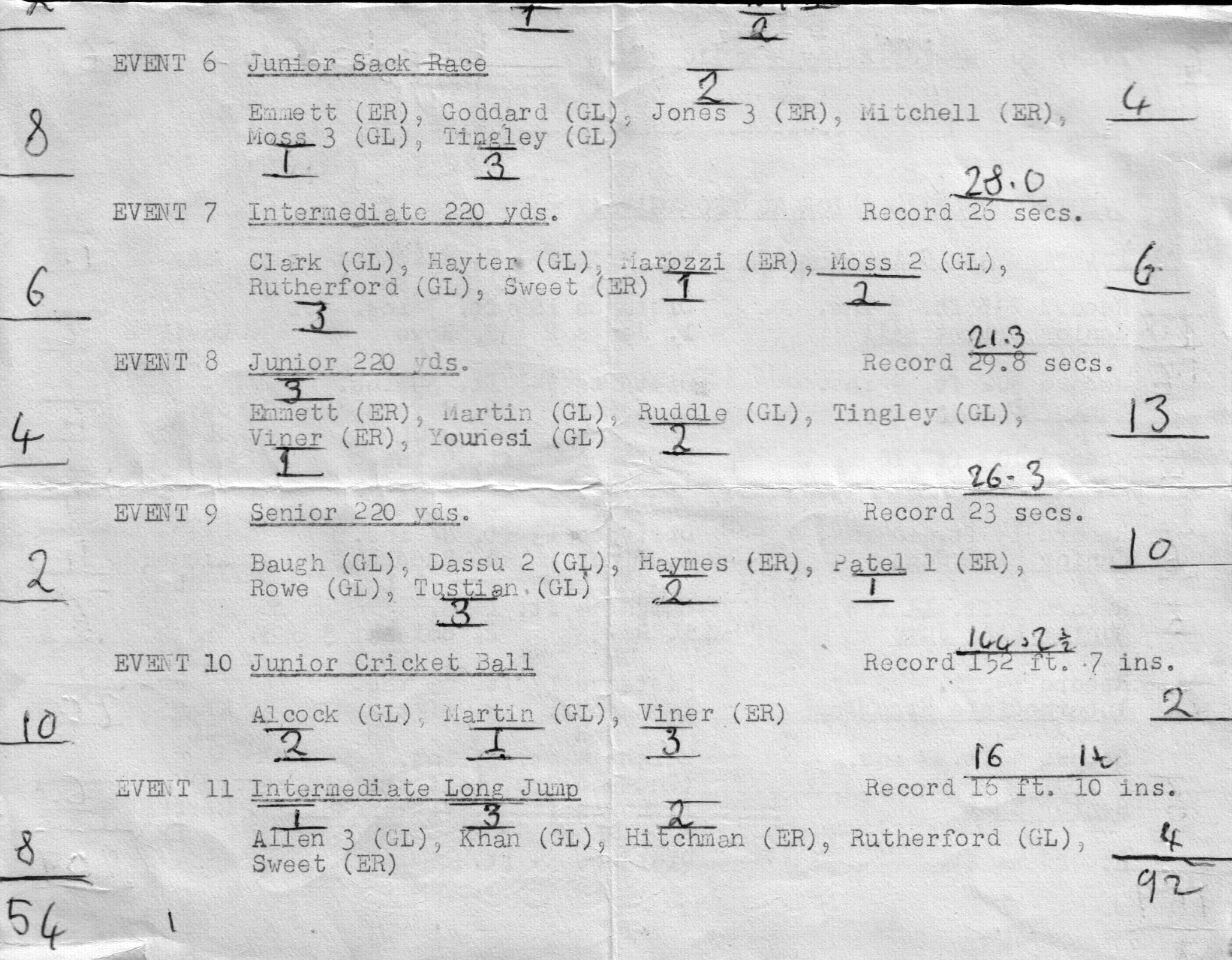 1 2
EVENT 6 Junior Sack Race
2
8 Emmett (ER), Goddard (GL), Jones 3 (ER), Mitchell (ER), 4
Moss 3 (GL), Tingley (GL)
1 3
28.0
EVENT 7 Intermediate 220 yds. Record 26 secs.
6 Clark (GL), Hayter (GL), Marozzi (ER), Moss 2 (GL), 6
Rutherford (GL), Sweet (ER) 1 2
3
21.3
EVENT 8 Junior 220 yds. Record 29.8 secs.
3
4 Emmett (ER), Martin (GL), Ruddle (GL), Tingley (GL), 13
Viner (ER), Younesi (GL) 2
1
26.3
EVENT 9 Senior 220 yds. Record 23 secs.
2 Baugh (GL), Dassu 2 (GL), Haymes (ER), Patel 1 (ER), 10
Rowe (GL), Tustian (GL) 2 1
3
144.2½
EVENT 10 Junior Cricket Ball Record 152 ft. 7 ins.
10 Alcock (GL), Martin (GL), Viner (ER) 2
2 1 3
16
EVENT 11 Intermediate Long Jump Record 16 ft. 10 ins.
1 3 2
8 Allen 3 (GL), Khan (GL), Hitchman (ER), Rutherford (GL), 4
Sweet (ER)
54 1 92